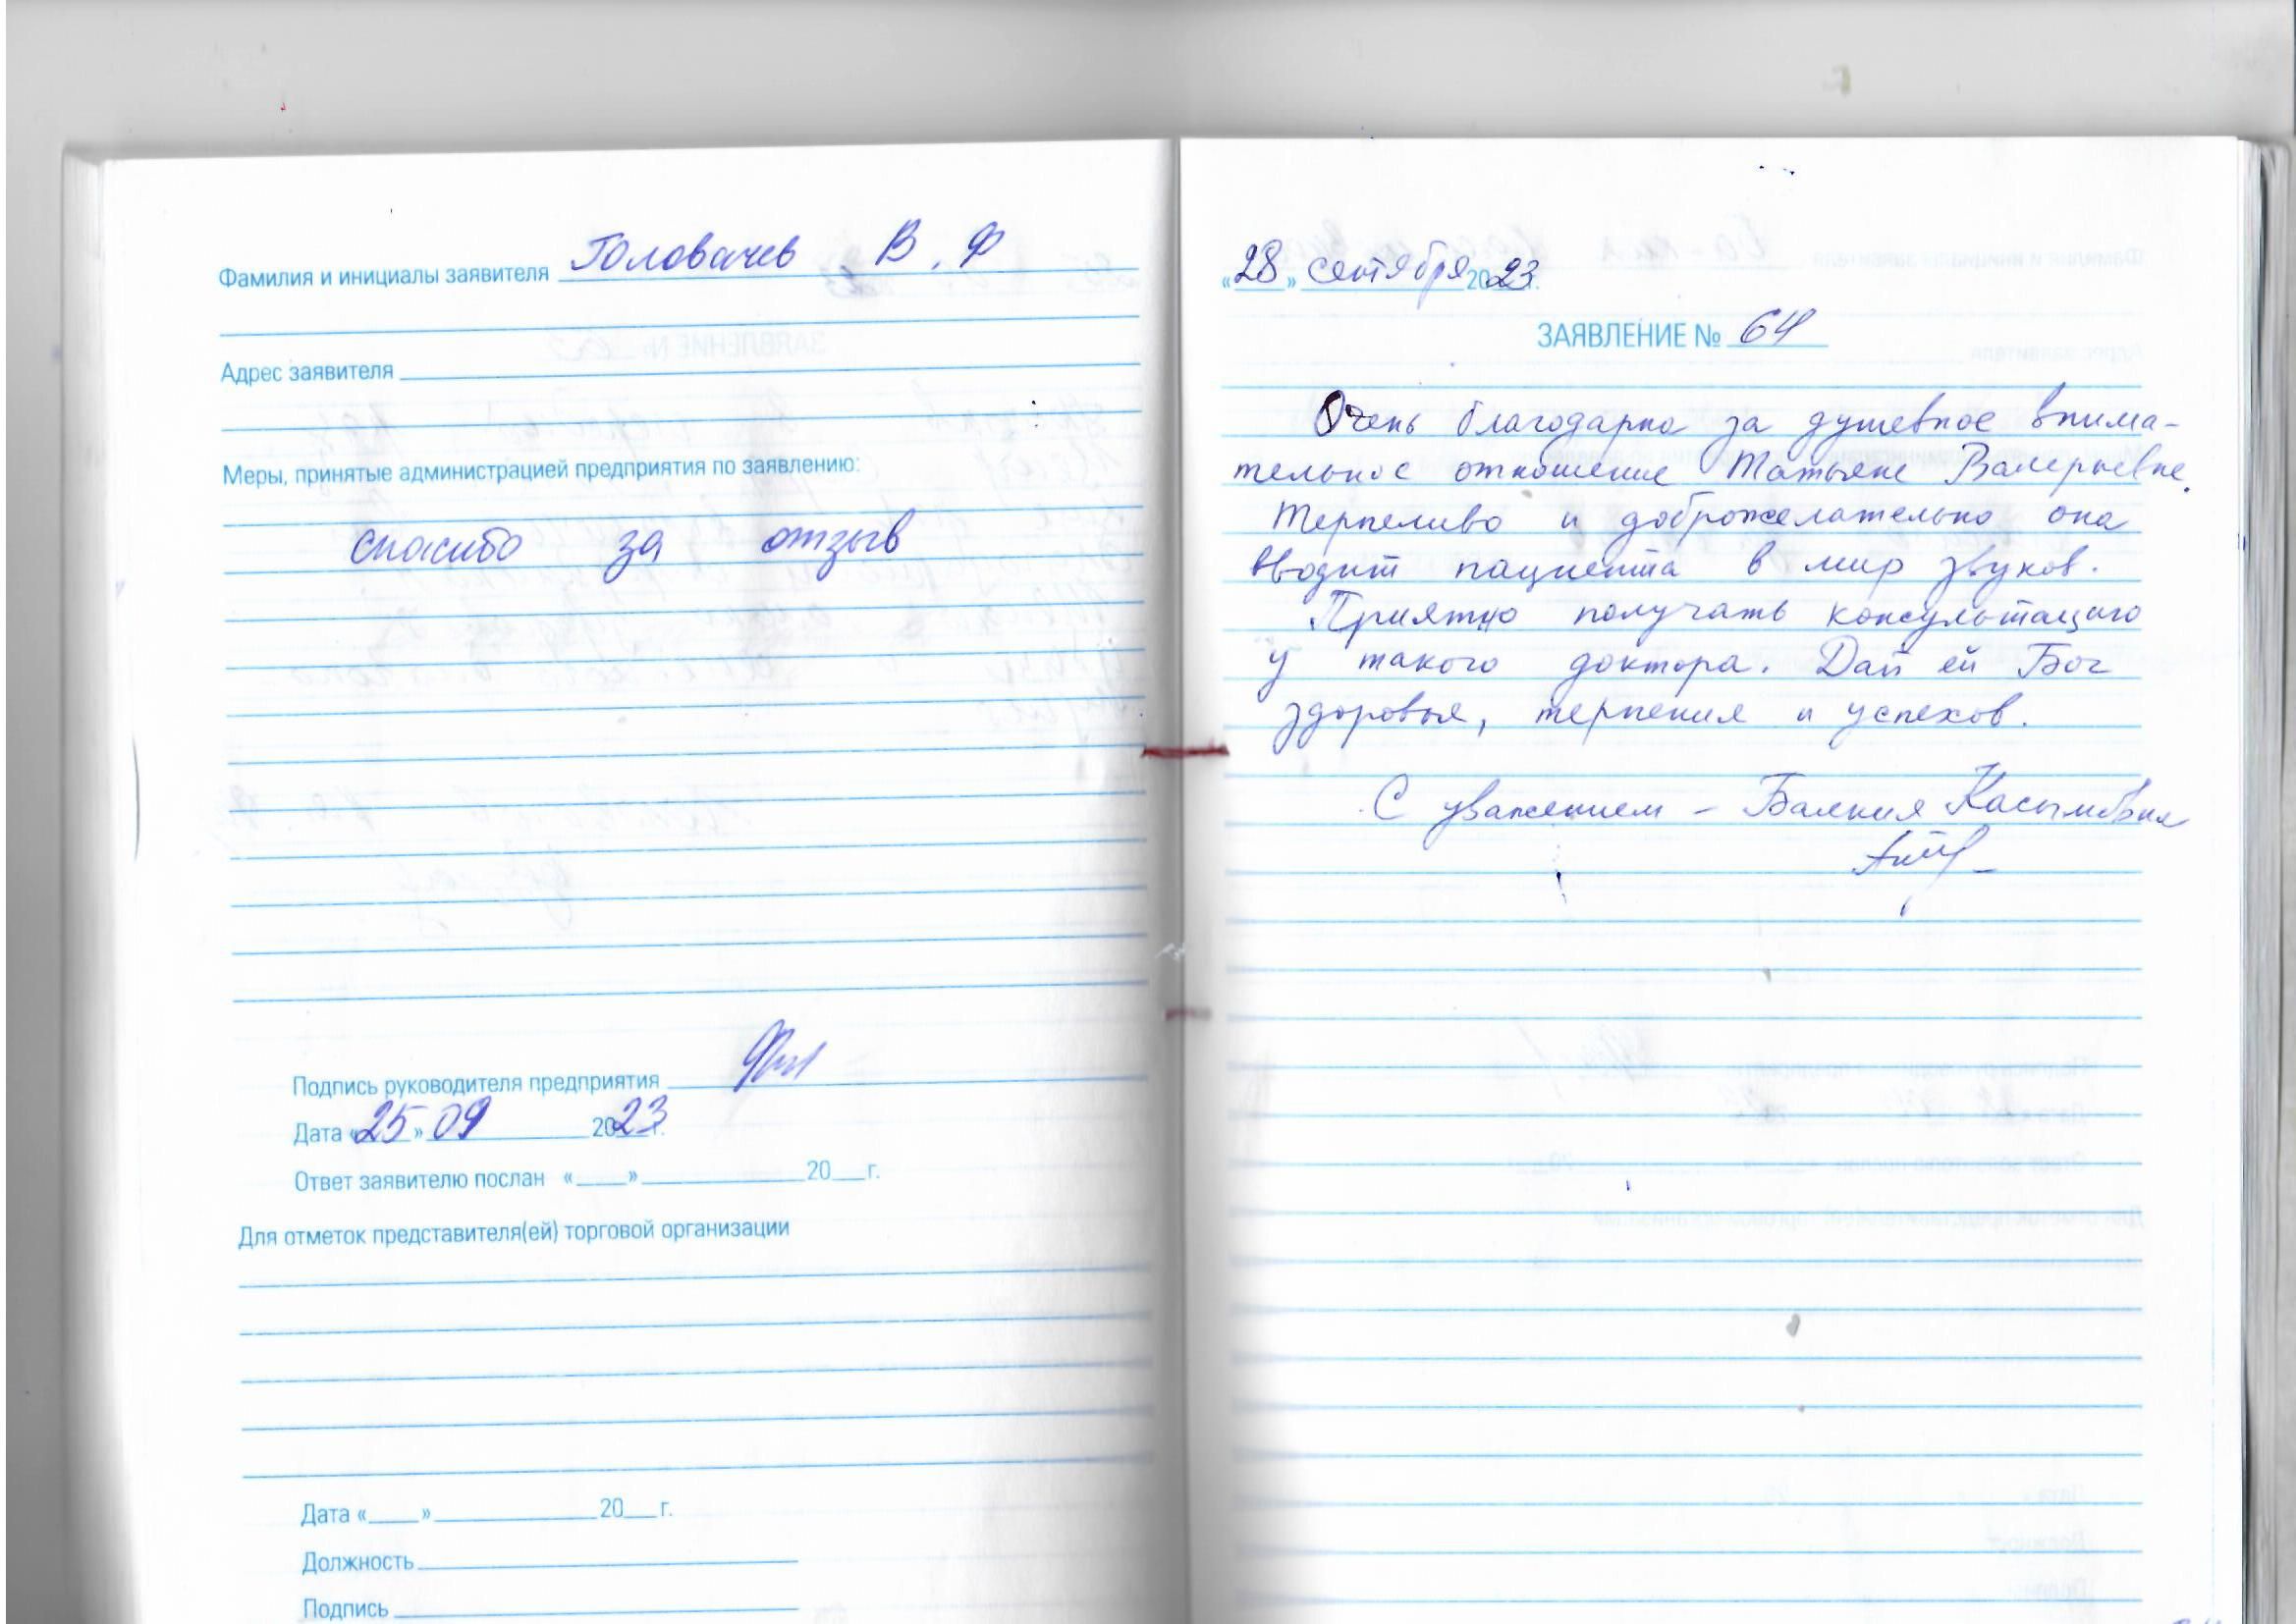 Фамилия и инициалы заявителя Головачев В. Ф
Адрес заявителя
Меры, принятые администрацией предприятия по заявлению:
спасибо за отзыв
Подпись руководителя предприятия
Дата «25» 09 2023 г.
Ответ заявителю послан «____» ____________ 20___г.
Для отметок представителя(ей) торговой организации
Дата «____» ____________ 20___г.
Должность
Подпись
«28» сентября 2023 г.
ЗАЯВЛЕНИЕ № 64
Очень благодарна за душевное внима-
тельное отношение Татьяне Валерьевне.
Терпеливо и доброжелательно она
вводит пациента в мир звуков.
Приятно получать консультацию
у такого доктора. Дай ей Бог
здоровья, терпения и успехов.
С уважением – Касымовна